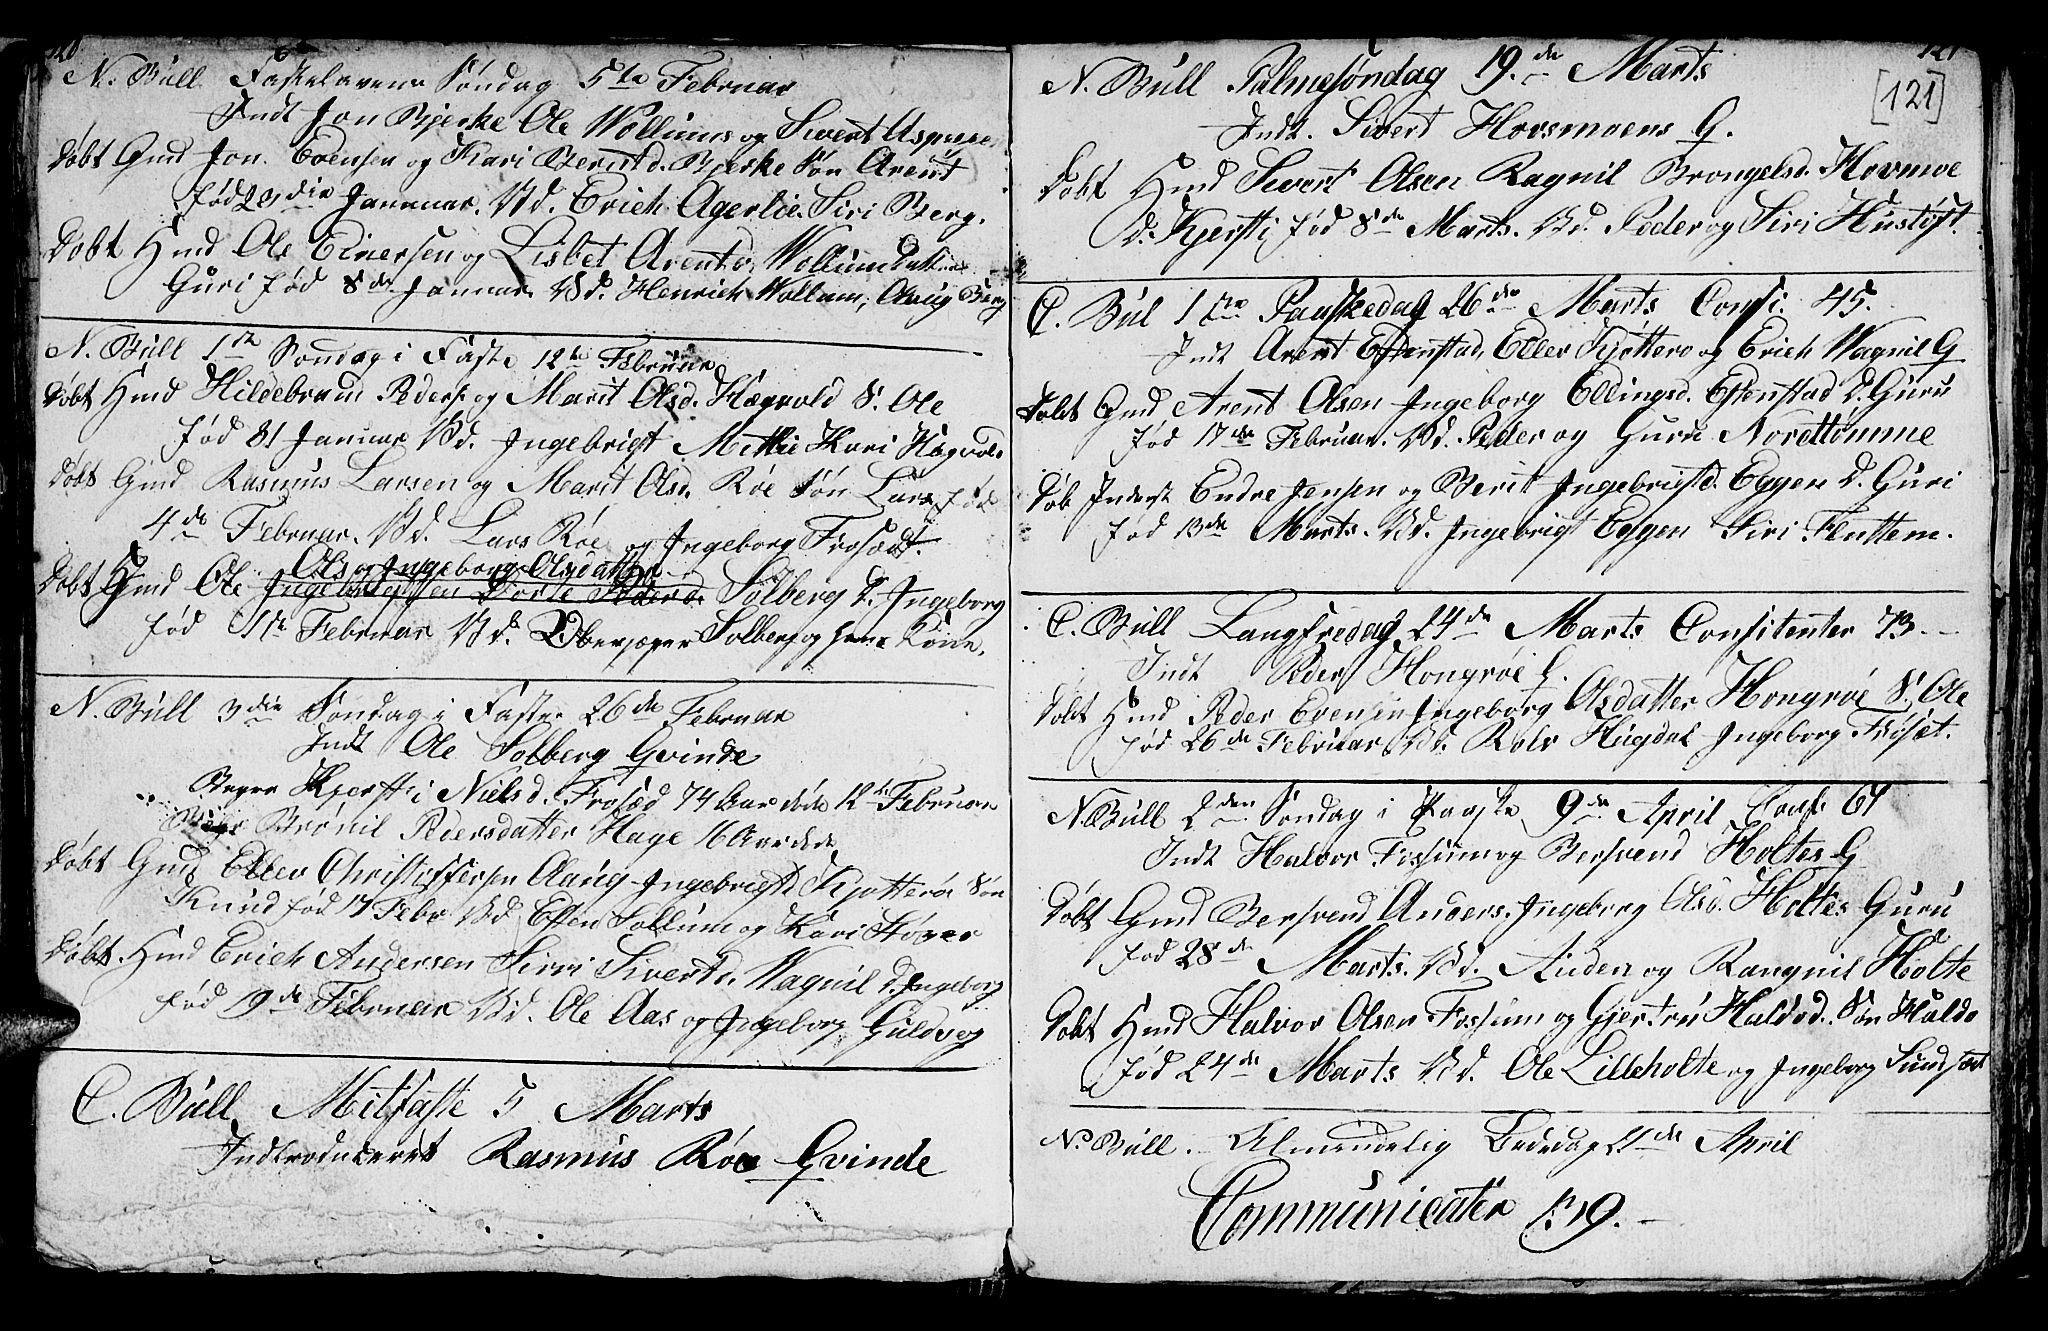 120
N. Büll Fastelavens Söndag 5te Februar
Indt Jon Bjerke Ole Wollums og Sivert
Döbt Gmd Jon Evensen og Kari Berntd. Bjerke Sön Arent
föd 28die Januar. Vd. Erich Agerlie Siri Berg.
Döbt Hmd Ole Einersen og Lisbet Arentd. Wollum Datter
Guri föd 8de Januar Vd. Henrich Wollum, Berg
N. Büll 1te Söndag i Faste 12te Februar
Döbt Hmd Hildebrand Peders. og Marit Olsd. Hægvold S. Ole
föd 31 Januar Vd. Ingebrigt Kari Hægvold
Döbt Gmd Rasmus Larsen og Marit Olsd. Röe Sön Lars föd
4de Februar. Vd. Lars Röe og Ingeborg Frosæt.
Ols og Ingeborg Olsdatter
Döbt Gmd Ole Ingebrigtsen Dorte Pedersd. Solberg d. Ingeborg
föd 1te Februar Vd. Oberjæger Solberg og
N. Büll 3die Söndag i Faste 26de Februar
Indt Ole Solberg Qvinde
Begr. Kjersti Nielsd. Frosæd 74 Aar döde 12te Februar
Begr Brönil Pedersdatter Hage 16 Aar
Döbt Gmd Eller Christoffersen Aaug Ingebrigtd Kjötterö Sön
Knud föd 17 Febr Vd Esten Sollum og Kari Stöver
Döbt. Hmd Erich Andersen Sirri Sivertsd. Wagnil d. Ingeborg
föd 19de Februar Vd. Ole Aas og Ingeborg Guldveg
C. Büll Mitfaste 5 Marts
Indtroduceret Rasmus Röe Qvinde
121
[121]
N. Büll Palmesöndag 19.de Marts
Indt. Sivert Hovsmoens Q.
Döbt Hmd Sivert Olsen Ragnil Brongelsd. Hovmoe
D. Kjersti föd 8de Marts. Vd. Peder og Siri Hustöft.
C. Bül 1te Paaskedag 26de Marts Confi. 45.
Indt Arent Estenstad, Eller Kjötterö og Erich Wagnil Q
Döbt Gmd Arent Olsen Ingeborg Ellingsd. Estenstad D. Guru
föd 17de Februar. Vd. Peder og Guru Norettömme
Döb Inderst Endre Jensen og Berit Ingebrigtd. Eggen D. Guri
föd 13de Marts. Vd. Ingebrigt Eggen Siri Fluttem.
C. Büll Langfredag 24de Marts Confitenter 73.
Indt Peder Hongröe Q.
Döbt Hmd Peder Evensen Ingeborg Olsdatter Hongröe S. Ole
föd 26de Februar Vd. Rolv Hugdal Ingeborg Fröset.
N. Büll 2den Söndag i Paaske 9de April Conf. 61
Indt Halvor Fossum og Bersvend Holtes Q
Döbt Gmd Bersvend Anders. Ingeborg Olsd. Holtes Guru
föd 28de Marts. Vd. Auden og Rangnil Holte
Döbt Hmd Halvor Olsen Fossum og Gjertru Haldod. Sön Haldo
föd 24de Marts Vd. Ole Lilleholte og Ingeborg Sundset
N. Büll. Almindelig Bededag 21de April
Communicater 19.